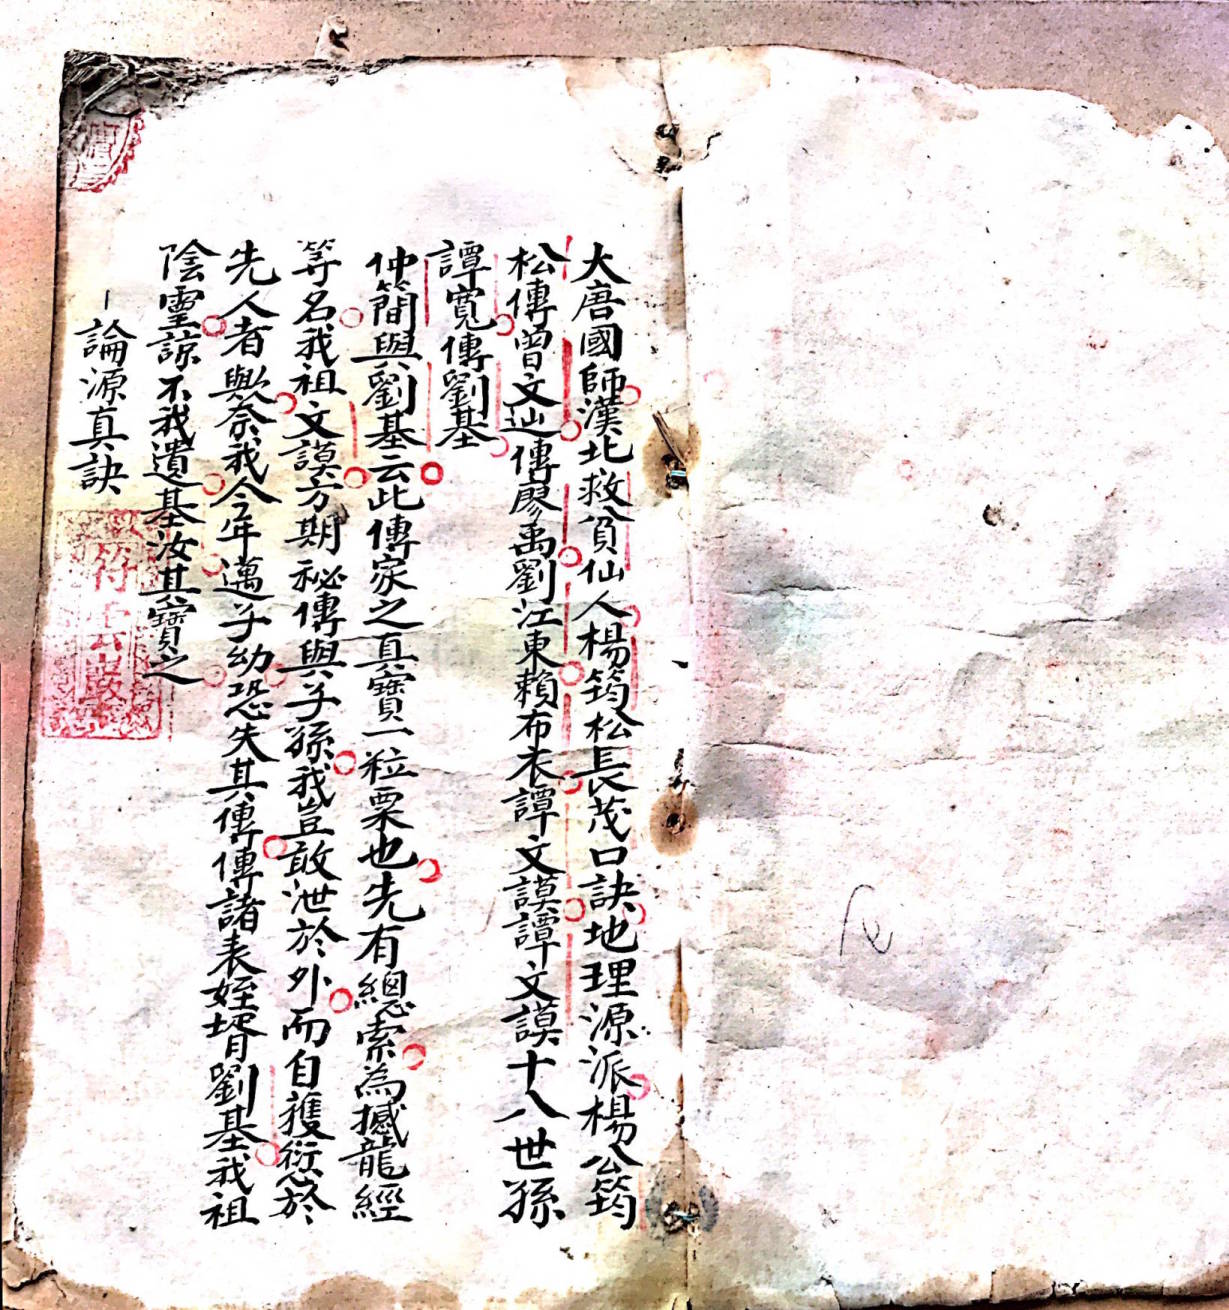 大唐國師漢北救貧仙人楊筠松長茂口訣地理源派楊公筠
松傳曾文辿傳廖禹劉江東賴布衣譚文謨譚文謨十八世孫
譚寬傳劉基
仲簡與劉基云此傳家之真寶一粒粟也先有總索為撼龍經
等名我祖文謨方期秘傳與子孫我豈敢泄於外而自獲愆於
先人者歟奈我今年邁子幼恐失其傳傳諸表姪壻劉基我祖
陰靈諒不我遺基汝其寶之
一論源真訣
符